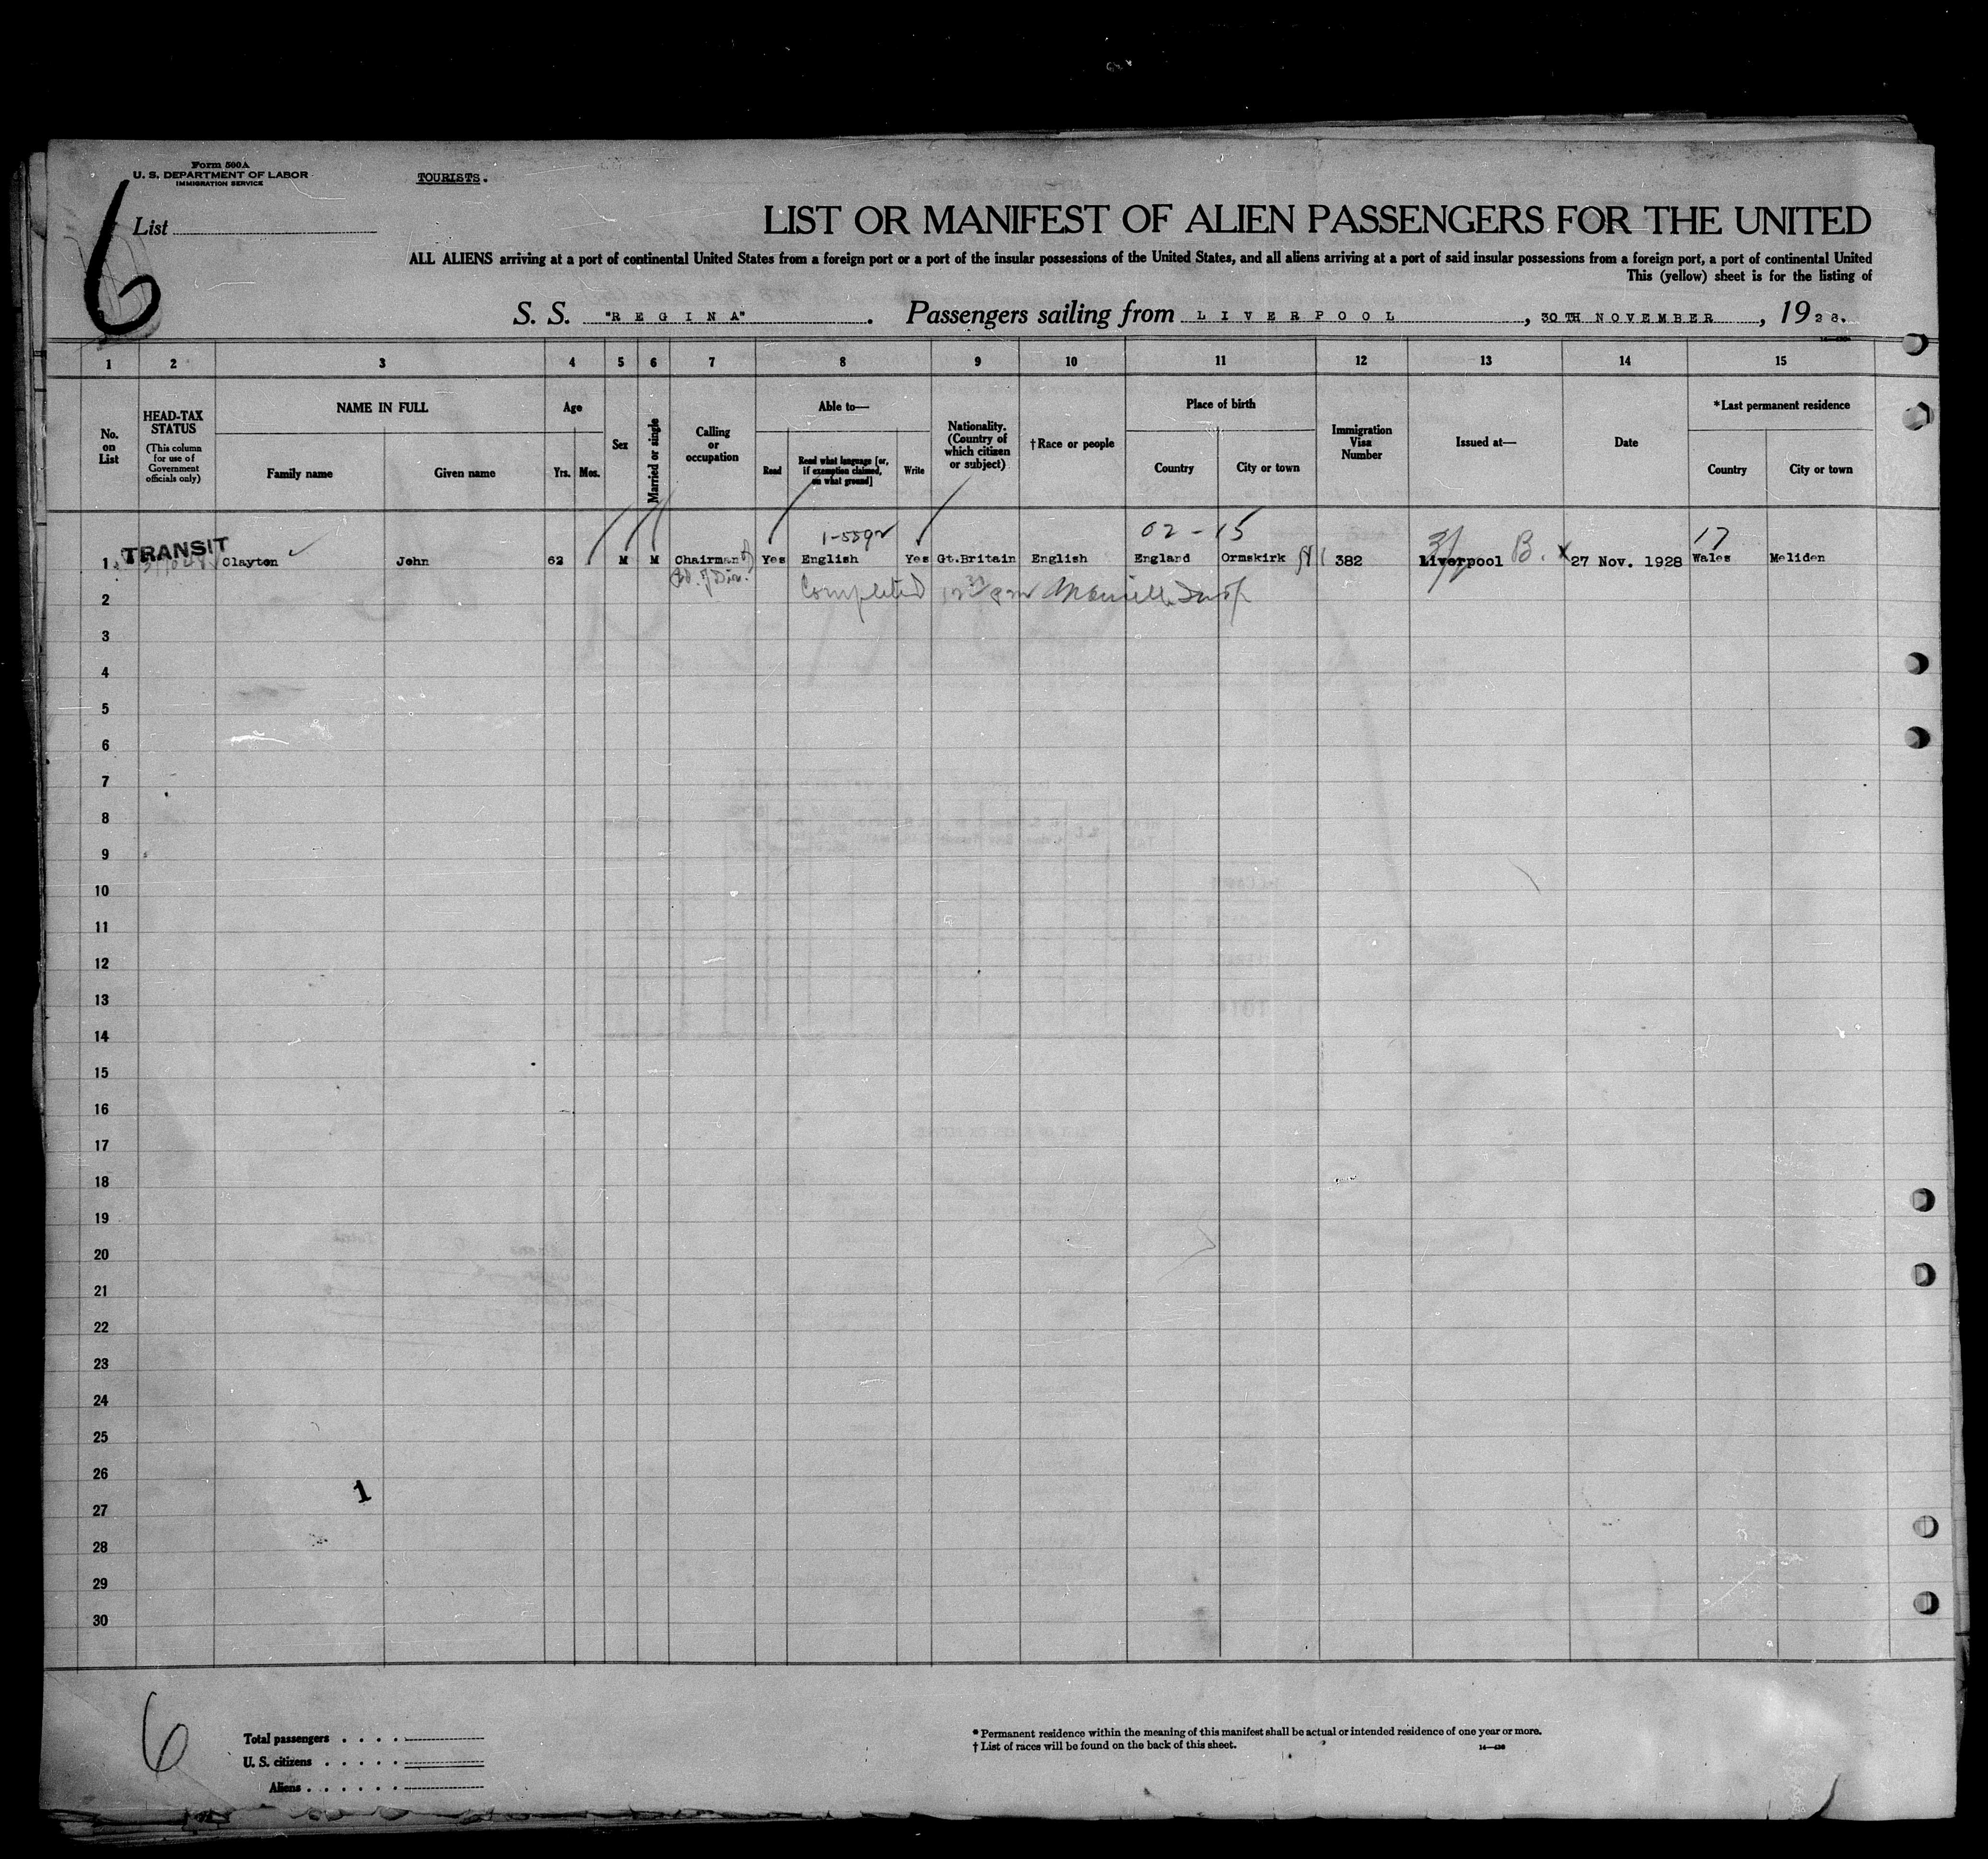 Form 500A
U. S. DEPARTMENT OF LABOR
IMMIGRATION SERVICE
TOURISTS.
6
List
LIST OR MANIFEST OF ALIEN PASSENGERS FOR THE UNITED
ALL ALIENS arriving at a port of continental United States from a foreign port or a port of the insular possessions of the United States, and all aliens arriving at a port of said insular possessions from a foreign port, a port of continental United
This (yellow) sheet is for the listing of
S. S. "REGINA". Passengers sailing from LIVERPOOL, 30TH NOVEMBER, 1928.
1 2 3 4 5 6 7 8 9 10 11 12 13 14 15
No. on List
HEAD-TAX STATUS
(This column for use of Government officials only)
NAME IN FULL
Family name Given name
Age
Yrs. Mos.
Sex
Married or single
Calling or occupation
Able to—
Read Read what language [or, if exemption claimed, on what ground] Write
Nationality. (Country of which citizen or subject)
†Race or people
Place of birth
Country City or town
Immigration Visa Number
Issued at—
Date
*Last permanent residence
Country City or town
02-15 17
1 TRANSIT Clayton John 62 M M Chairman of Yes English Yes Gt.Britain English England Ormskirk 382 Liverpool B. 27 Nov. 1928 Wales Meliden
Completed
2
3
4
5
6
7
8
9
10
11
12
13
14
15
16
17
18
19
20
21
22
23
24
25
26
1
27
28
29
30
6
Total passengers . . . .
U. S. citizens . . . . .
Aliens . . . . . .
* Permanent residence within the meaning of this manifest shall be actual or intended residence of one year or more.
† List of races will be found on the back of this sheet.